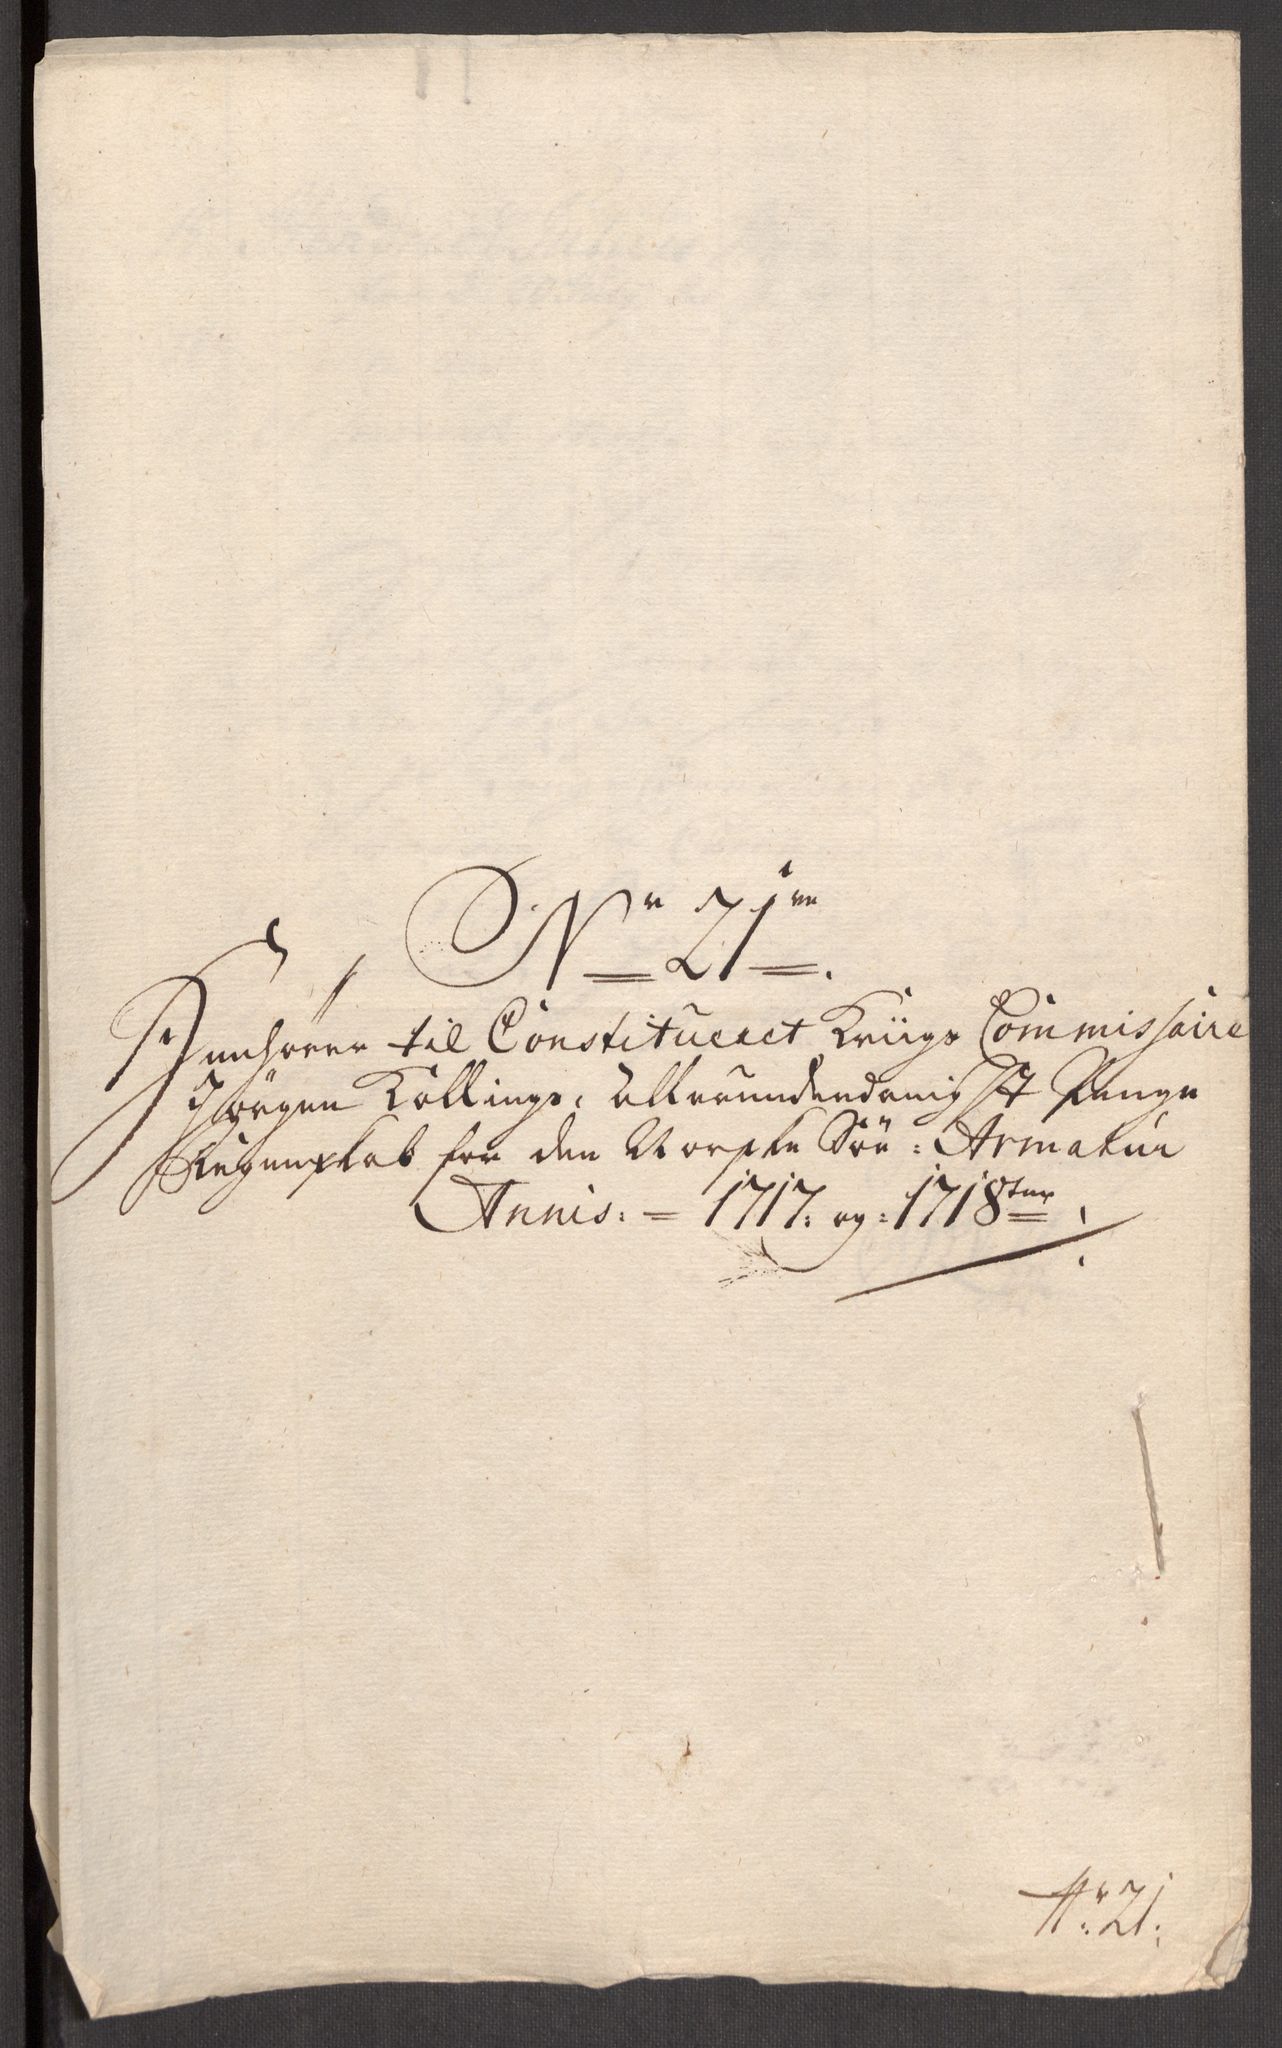 No 21de
Henhörer til Constitueret Kriigs Commissaire
Jörgen Kollings, Allerunderdanigst Penge
Regenskab for den Norske Söe: Armatur
Annis: = 1717: og: 1718ten
No: 21: